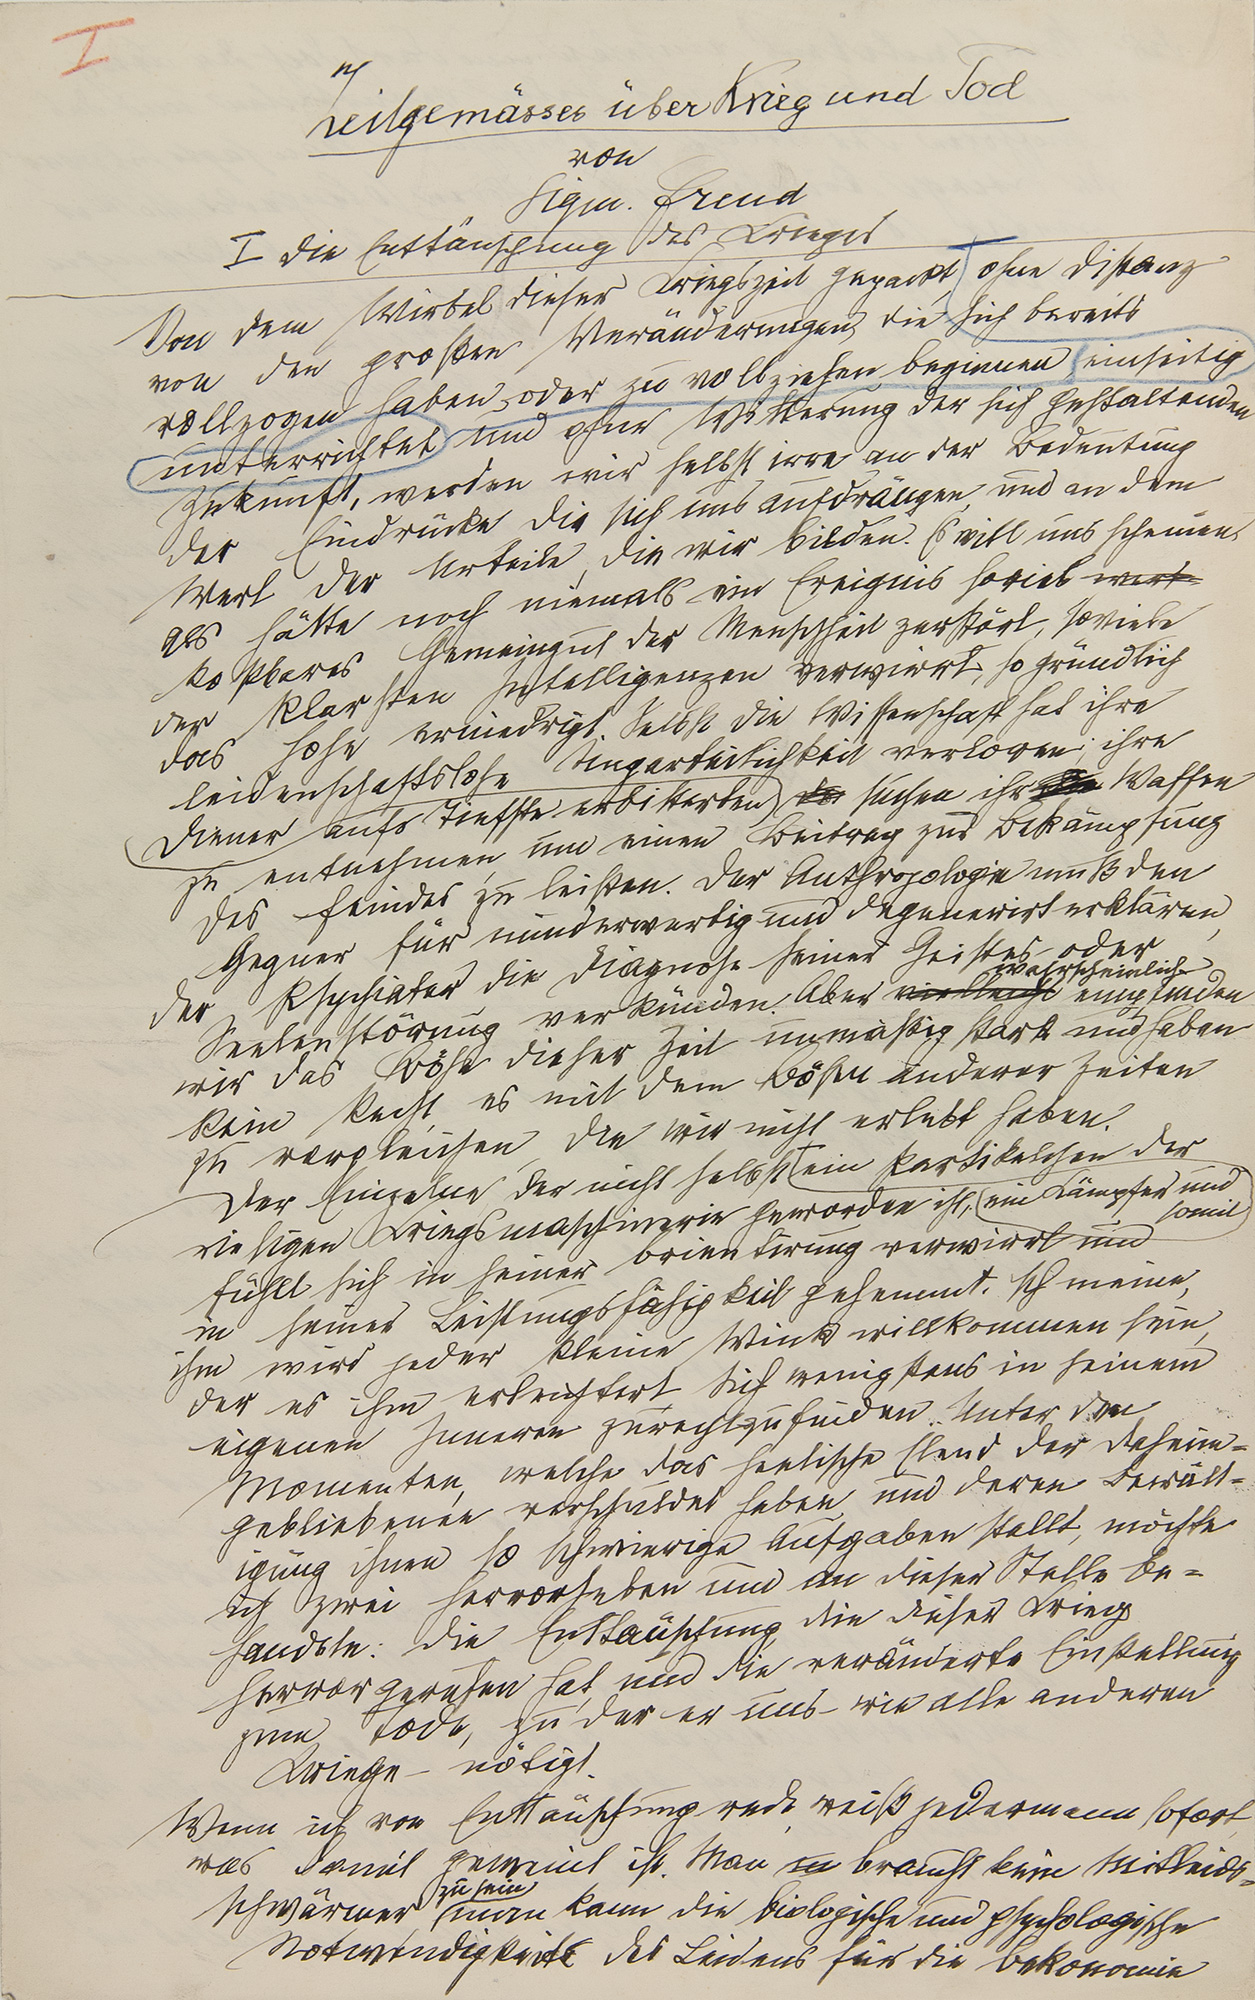 I
Zeitgemässes über Krieg und Tod
von
Sigm. Freud
I Die Enttäuschung des Krieges
Von dem Wirbel dieser Kriegszeit gepackt, ohne Distanz
von den großen Veränderungen, die sich bereits
vollzogen haben, oder zu vollziehen beginnen einseitig
unterrichtet und ohne Witterung der sich gestaltenden
Zukunft, werden wir selbst irre an der Bedeutung
der Eindrücke die sich uns aufdrängen und an dem
Wert der Urteile, die wir bilden. Es will uns scheinen,
als hätte noch niemals ein Ereignis soviel wert
kostbares Gemeingut der Menschheit zerstört, soviele
der klarsten Intelligenzen verwirrt, so gründlich
das Hohe erniedrigt. Selbst die Wissenschaft hat ihre
leidenschaftslose Unparteilichkeit verloren; ihre
Diener aufs Tiefste erbitterten suchen ihr Waffen
zu entnehmen, um einen Beitrag zur Bekämpfung
des Feindes zu leisten. Der Anthropologe muß den
Gegner für minderwertig und degenerirt erklären,
der Psychiater die Diagnose seiner Geistes- oder
wahrscheinlich
Seelenstörung verkünden. Aber vielleicht empfinden
wir das Böse dieser Zeit unmäßig stark und haben
kein Recht, es mit dem Bösen anderer Zeiten
zu vergleichen, die wir nicht erlebt haben.
Der Einzelne, der nicht selbst ein Partikelchen der
riesigen Kriegsmaschinerie geworden ist, ein Kämpfer und
somit
fühlt sich in seiner Orientirung verwirrt und
in seiner Leistungsfähigkeit gehemmt. Ich meine,
ihm wird jeder kleine Wink willkommen sein,
der es ihm erleichtert sich wenigstens in seinem
eigenen Inneren zurechtzufinden. Unter den
Momenten, welche das seelische Elend der Daheim=
gebliebenen verschuldet haben, und deren Bewält=
igung ihnen so schwierige Aufgaben stellt, möchte
ich zwei hervorheben und an dieser Stelle be=
handeln: Die Enttäuschung, die dieser Krieg
hervorgerufen hat, und die veränderte Einstellung
zum Tode, zu der er uns – wie alle anderen
Kriege – nötigt.
Wenn ich von Enttäuschung rede, weiß jedermann sofort,
was damit gemeint ist. Man braucht kein Mitleids=
zu sein
schwärmer, man kann die biologische und psychologische
Notwendigkeit des Leidens für die Oekonomie